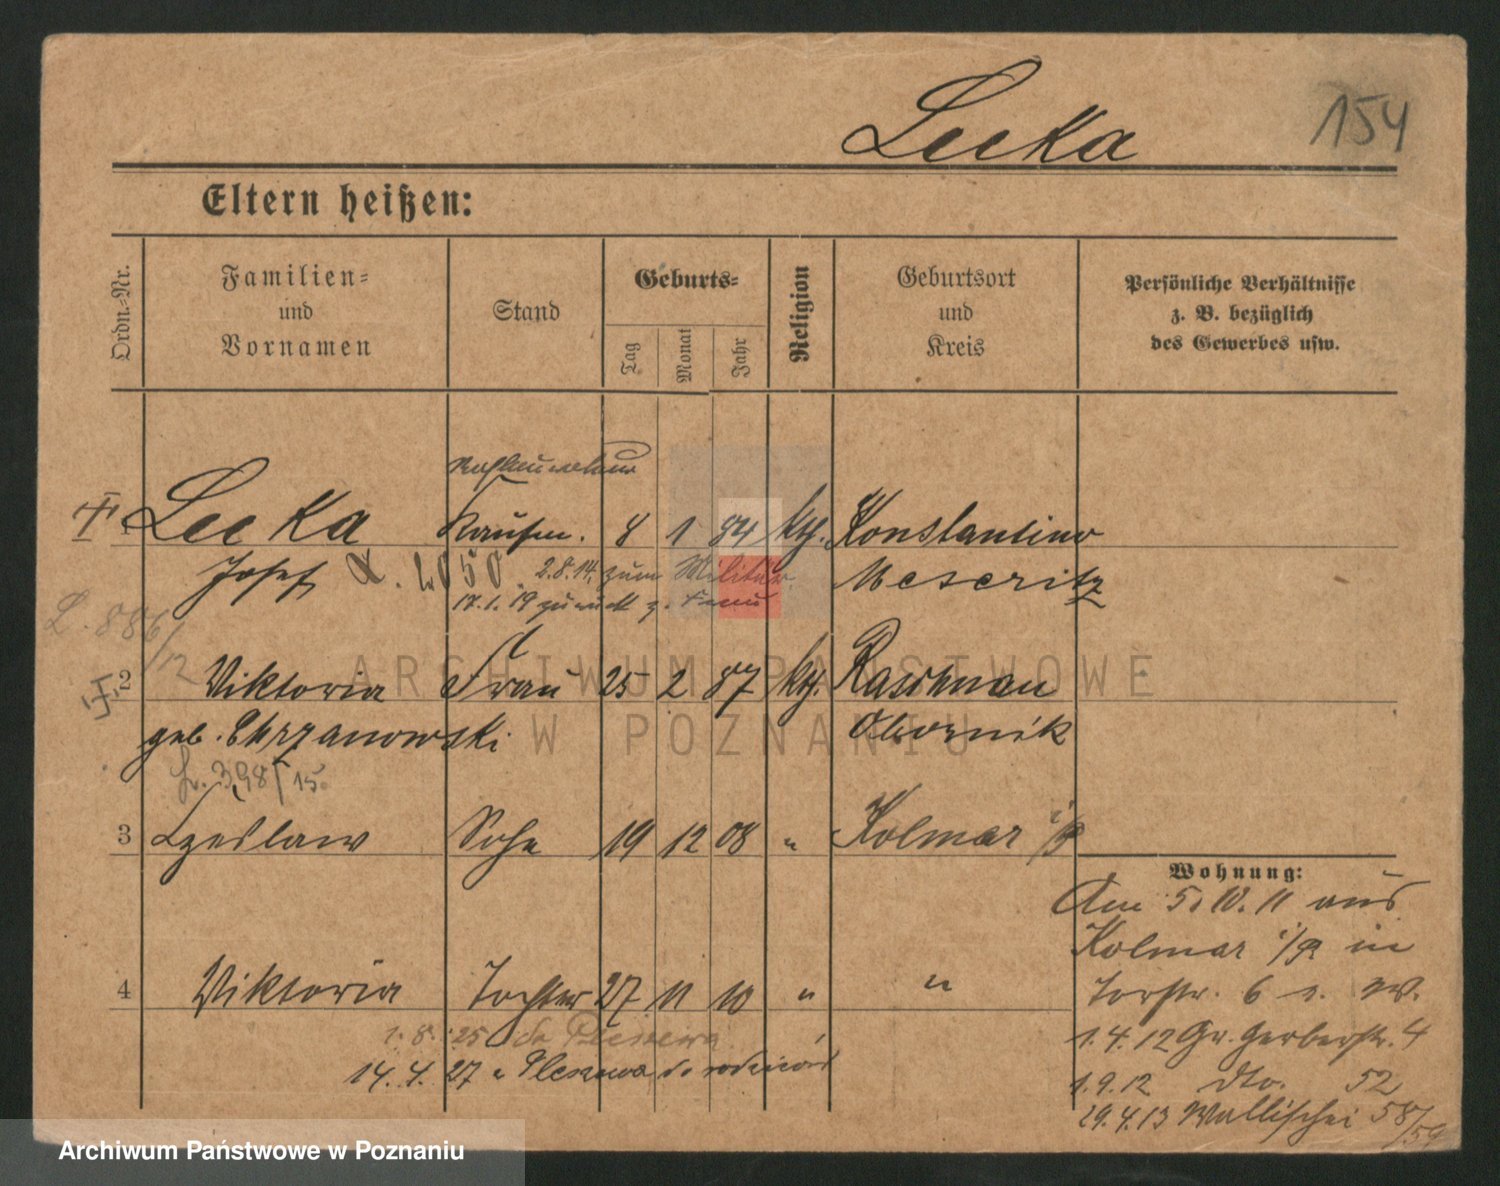 154
Leeka
Eltern heißen:
Ordn.-Nr.
Familien-
und
Vornamen
Stand
Geburts-
Tag
Monat
Jahr
Religion
Geburtsort
und
Kreis
Persönliche Verhältnisse
z. B. bezüglich
des Gewerbes usw.
1 Leeka Kaufm. 8 1 84 kth. Konstantinowo
Josef 2050 2.8.14. zum Militär Meseritz
17.1.19 zurück z. Frau
L. 886/12
2 Viktoria Frau 25 2 87 kth. Raschnau
geb. Chrzanowski Obornik
L. 398/15.
3 Czeslaw Sohn 19 12 08 " Kolmar i/P
4 Viktoria Tochter 27 11 10 " "
1.8.25 do Pleszewa
14.4.27 z Pleszewa do rodziców
Wohnung:
Am 5.10.11 aus
Kolmar i/P in
Torstr. 6 I. W.
1.4.12 Gr. Gerberstr. 4
1.9.12 dto. 52
29.4.13 Wallischei 58/59
ARCHIWUM PAŃSTWOWE
W POZNANIU
Archiwum Państwowe w Poznaniu